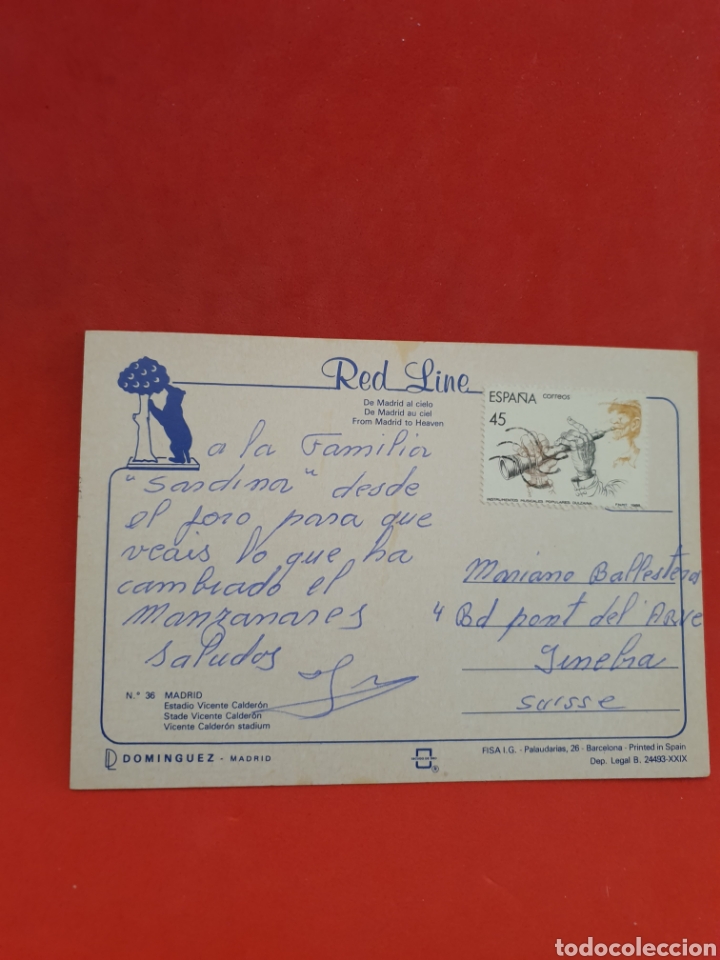 Red Line
De Madrid al cielo
De Madrid au ciel
From Madrid to Heaven
ESPAÑA correos
45
INSTRUMENTOS MUSICALES POPULARES. DULZAINA
a la Familia
"Sardina" desde
el foro para que
veais lo que ha
cambiado el
Manzanares
Saludos
Mariano Ballesteros
4 Bd pont del'Arve
Ginebra
Suisse
N.° 36 MADRID
Estadio Vicente Calderón
Stade Vicente Calderón
Vicente Calderón stadium
DOMINGUEZ - MADRID
FISA I.G. - Palaudarias, 26 - Barcelona - Printed in Spain
Dep. Legal B. 24493-XXIX
todocoleccion